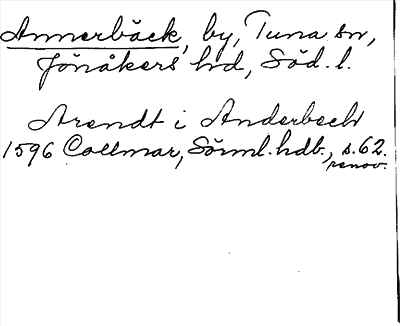 Annerbäck, by, Tuna sn,
Jönåkers hd, Söd. l.
Arendt i Anderbech
1596 Collmar, Sörml. hdb., s. 62.
renov.